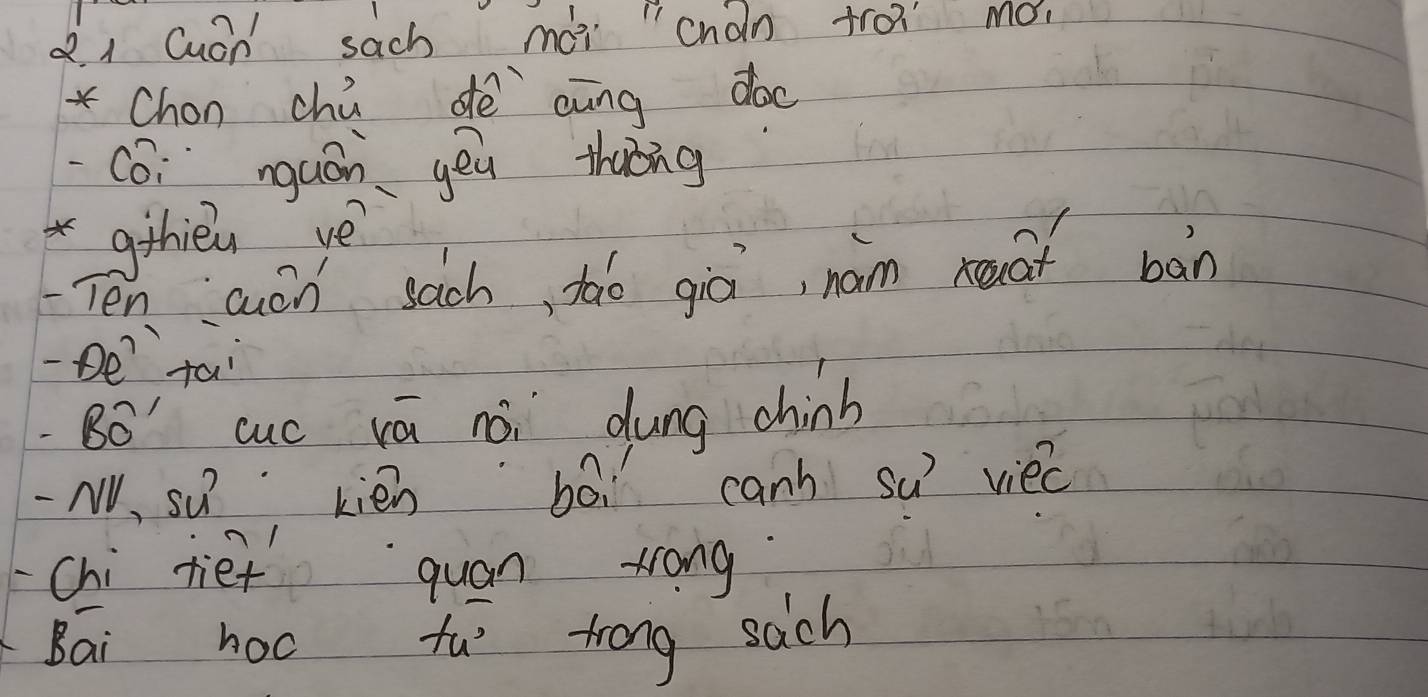 2.1 Cuốn sách mới "chân trời mới
* Chọn chủ đề cùng đọc
- Cội nguồn yêu thương
* gthiệu về
- Tên cuốn sách, tác giả, năm xuất bản
- Đề tài
- Bố cục và nội dung chính
- NV, sự kiện bối cảnh sự việc
- Chi tiết quan trọng
- Bài học từ trong sách